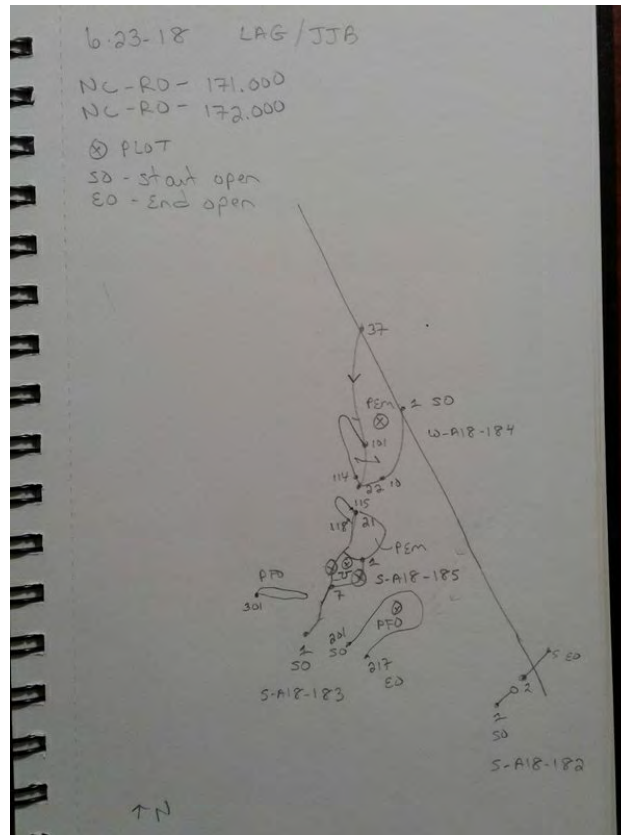 6-23-18 LAG/JJB
NC-RO- 171.000
NC-RO- 172.000
⊗ PLOT
SO - start open
EO - End open
37
1 SO
PEM
W-A18-184
101
114
22 10
115
118 21
PEM
1
S-A18-185
7
PFO
301
PFO
201
SO
1
SO
217
EO
S-A18-183
5 EO
2
1
SO
S-A18-182
↑N